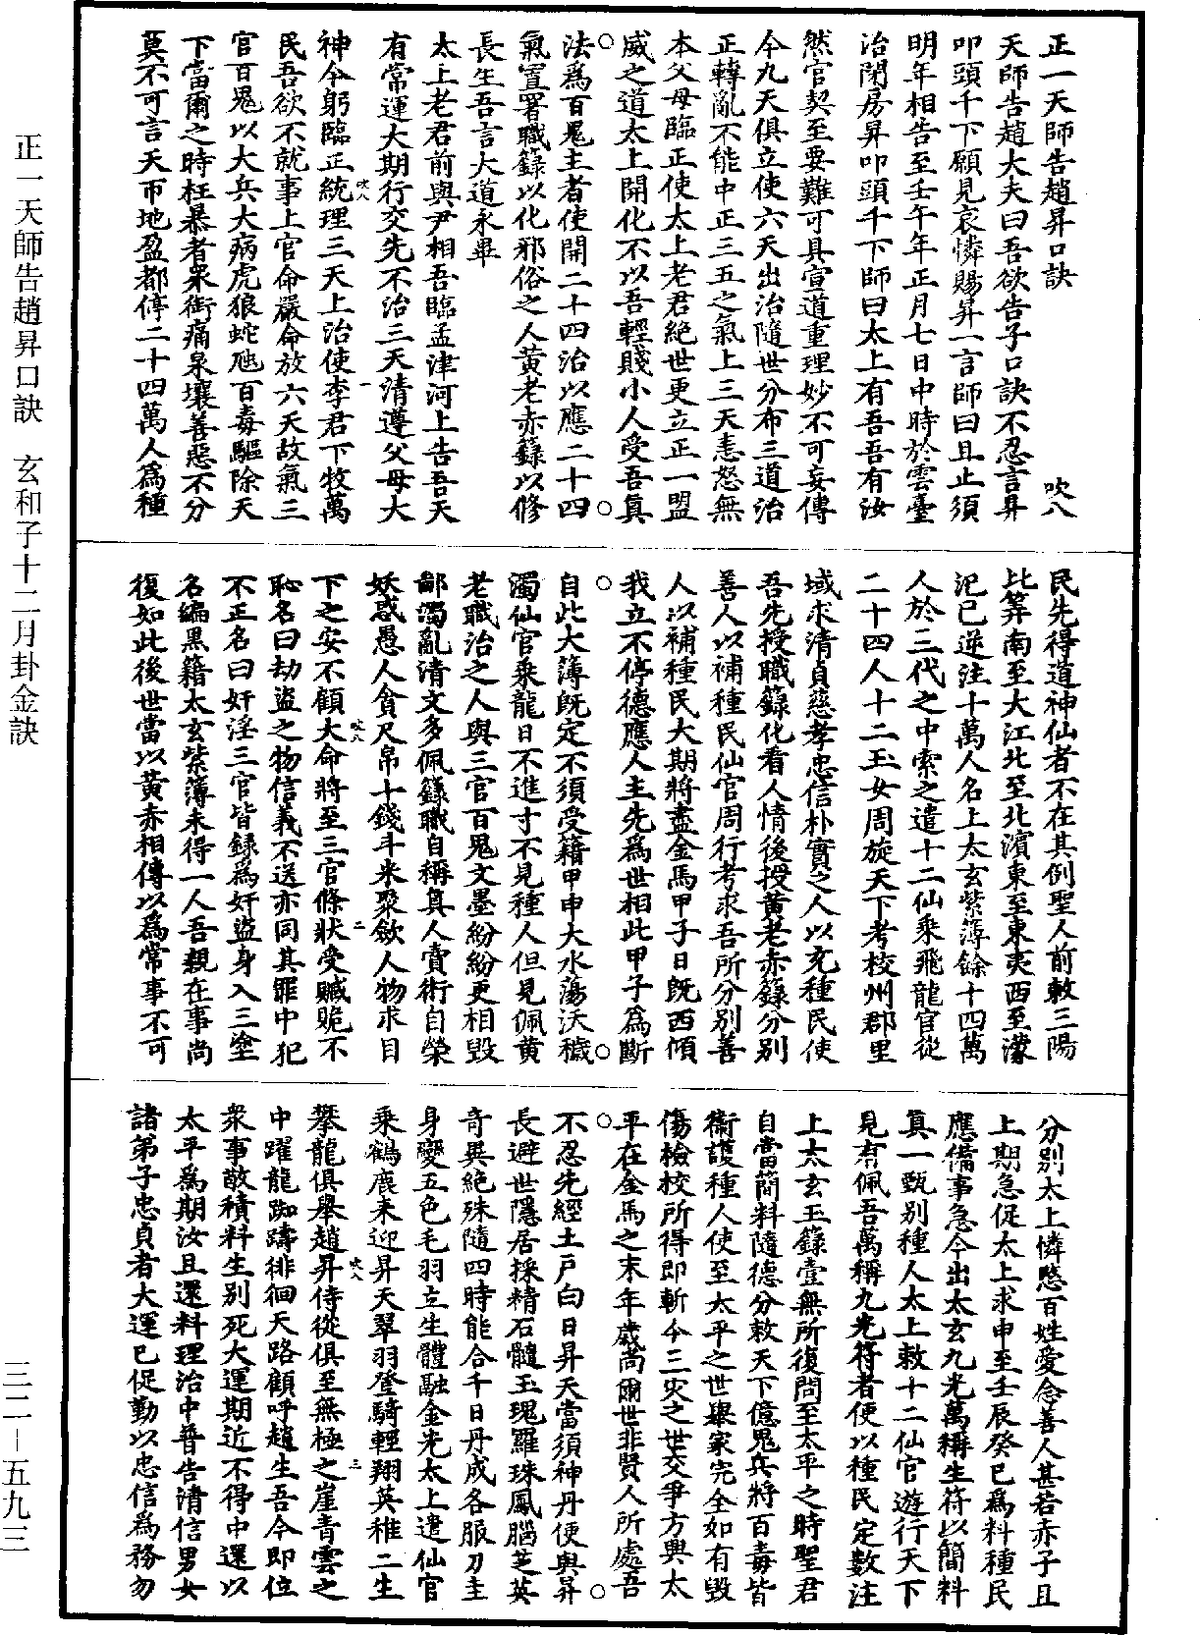 正一天師告趙昇口訣　吹八
天師告趙大夫曰吾欲告子口訣不忍言昇
叩頭千下願見哀憐賜昇一言師曰且止須
明年相告至壬午年正月七日中時於雲臺
治閉房昇叩頭千下師曰太上有吾吾有汝
然官契至要難可具宣道重理妙不可妄傳
今九天俱立使六天出治隨世分布三道治
正轉亂不能中正三五之氣上三天恚怒無
本父母臨正使太上老君絕世更立正一盟
威之道太上開化不以吾輕賤小人受吾真
法為百鬼主者使開二十四治以應二十四
氣置署職籙以化邪俗之人黃老赤籙以修
長生吾言大道永畢
太上老君前與尹相吾臨孟津河上告吾天
有常運大期行交先不治三天清遵父母大
神今躬臨正統理三天上治使李君下牧萬
民吾欲不就事上官命嚴命放六天故氣三
官百鬼以大兵大病虎狼蛇虺百毒驅除天
下當爾之時枉暴者眾銜痛泉壤善惡不分
莫不可言天帀地盈都停二十四萬人為種
民先得道神仙者不在其例聖人前敕三陽
比筭南至大江北至北濱東至東夷西至濛
汜已逆注十萬人名上太玄紫簿餘十四萬
人於三代之中索之遣十二仙乘飛龍官從
二十四人十二玉女周旋天下考校州郡里
域求清貞慈孝忠信朴實之人以充種民使
吾先授職籙化看人情後授黃老赤籙分別
善人以補種民仙官周行考求吾所分別善
人以補種民大期將盡金馬甲子日既西傾
我立不停德應人主先為世相此甲子為斷
自此大簿既定不須受籍甲申大水蕩沃穢
濁仙官乘龍日不進寸不見種人但見佩黃
老職治之人與三官百鬼文墨紛紛更相毀
鄙濁亂清文多佩籙職自稱真人賣術自榮
妖惑愚人貪尺帛十錢斗米聚斂人物求目
下之安不顧大命將至三官條狀受贓賄不
恥名曰劫盜之物信義不送亦同其罪中犯
不正名曰奸淫三官皆錄為奸盜身入三塗
名編黑籍太玄紫簿未得一人吾親在事尚
復如此後世當以黃赤相傳以為常事不可
分別太上憐愍百姓愛念善人甚若赤子且
上期急促太上求申至壬辰癸巳為料種民
應備事急今出太玄九光萬稱生符以簡料
真一甄別種人太上敕十二仙官遊行天下
見有佩吾萬稱九光符者便以種民定數注
上太玄玉籙壹無所復問至太平之時聖君
自當簡料隨德分敕天下億鬼兵將百毒皆
衛護種人使至太平之世舉家完全如有毀
傷檢校所得即斬今三災之世交爭方興太
平在金馬之末年歲尚爾世非賢人所處吾
不忍先經土戶白日昇天當須神丹便與昇
長避世隱居採精石髓玉瑰羅珠鳳腦芝英
奇異絕殊隨四時能合千日丹成各服刀圭
身變五色毛羽立生體融金光太上遣仙官
乘鶴鹿來迎昇天翠羽登騎輕翔英稚二生
攀龍俱舉趙昇侍從俱至無極之崖青雲之
中躍龍踟躊徘徊天路顧呼趙生吾今即位
眾事敢積料生別死大運期近不得中還以
太平為期汝且還料理治中普告清信男女
諸弟子忠貞者大運已促勤以忠信為務勿
正一天師告趙昇口訣　玄和子十二月卦金訣
三二－五九三